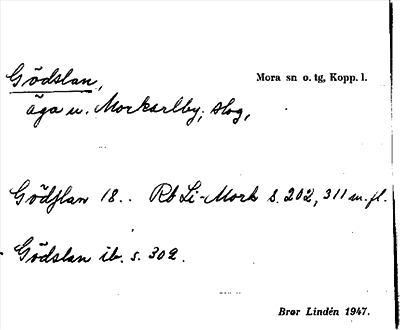 Gödslan,
Mora sn o. tg, Kopp. l.
äga u. Morkarlby; skog,
Gödslan 18.. Rb Li-Mork s. 202, 311 m. fl.
Gödslan ib. s. 302.
Bror Lindén 1947.